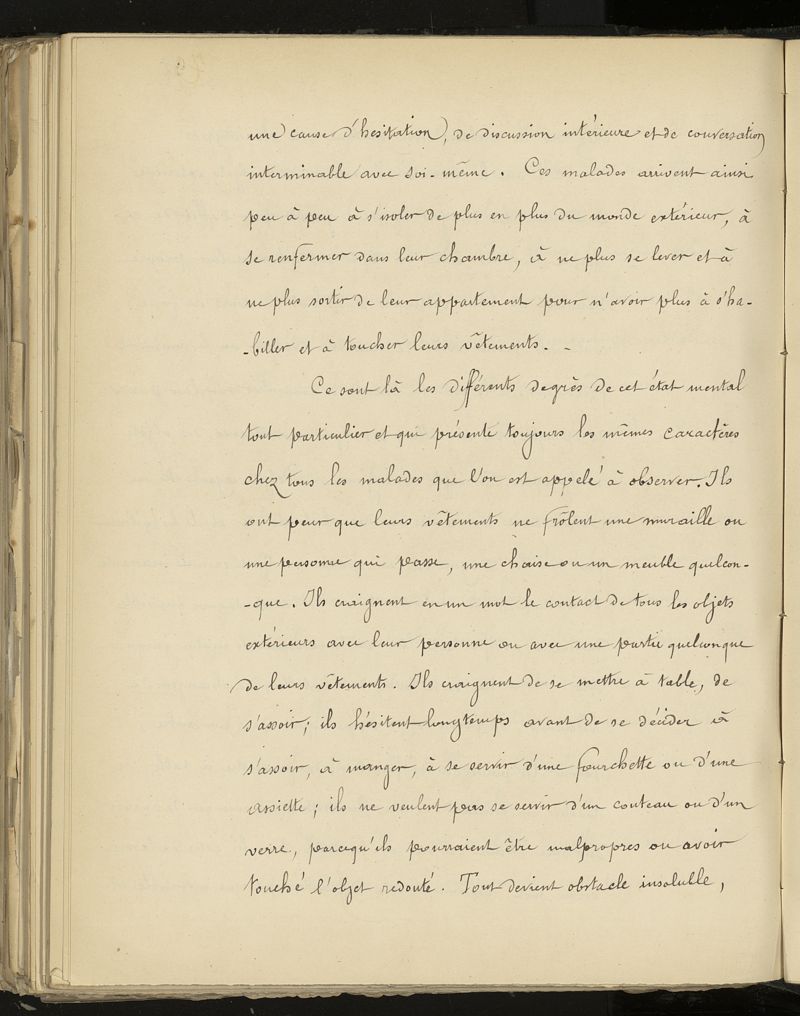 une cause d'hésitation, de discussion intérieure et de conversation
interminable avec soi-même. Ces malades arrivent ainsi
peu à peu à s'isoler de plus en plus du monde extérieur, à
se renfermer dans leur chambre, à ne plus se lever et à
ne plus sortir de leur appartement pour n'avoir plus à s'ha-
-biller et à toucher leurs vêtements. -
Ce sont là les différents degrès de cet état mental
tout particulier et qui présente toujours les mêmes caractères
chez tous les malades que l'on est appelé à observer. Ils
ont peur que leurs vêtements ne frôlent une muraille ou
une personne qui passe, une chaise ou un meuble quelcon-
-que. Ils craignent en un mot le contact de tous les objets
extérieurs avec leur personne ou avec une partie quelconque
de leurs vêtements. Ils craignent de se mettre à table, de
s'assoir; ils hésitent longtemps avant de se décider à
s'assoir, à manger, à se servir d'une fourchette ou d'une
assiette; ils ne veulent pas se servir d'un couteau ou d'un
verre, parcequ'ils pourraient être malpropres ou avoir
touché l'objet redouté. Tout devient obstacle insoluble,